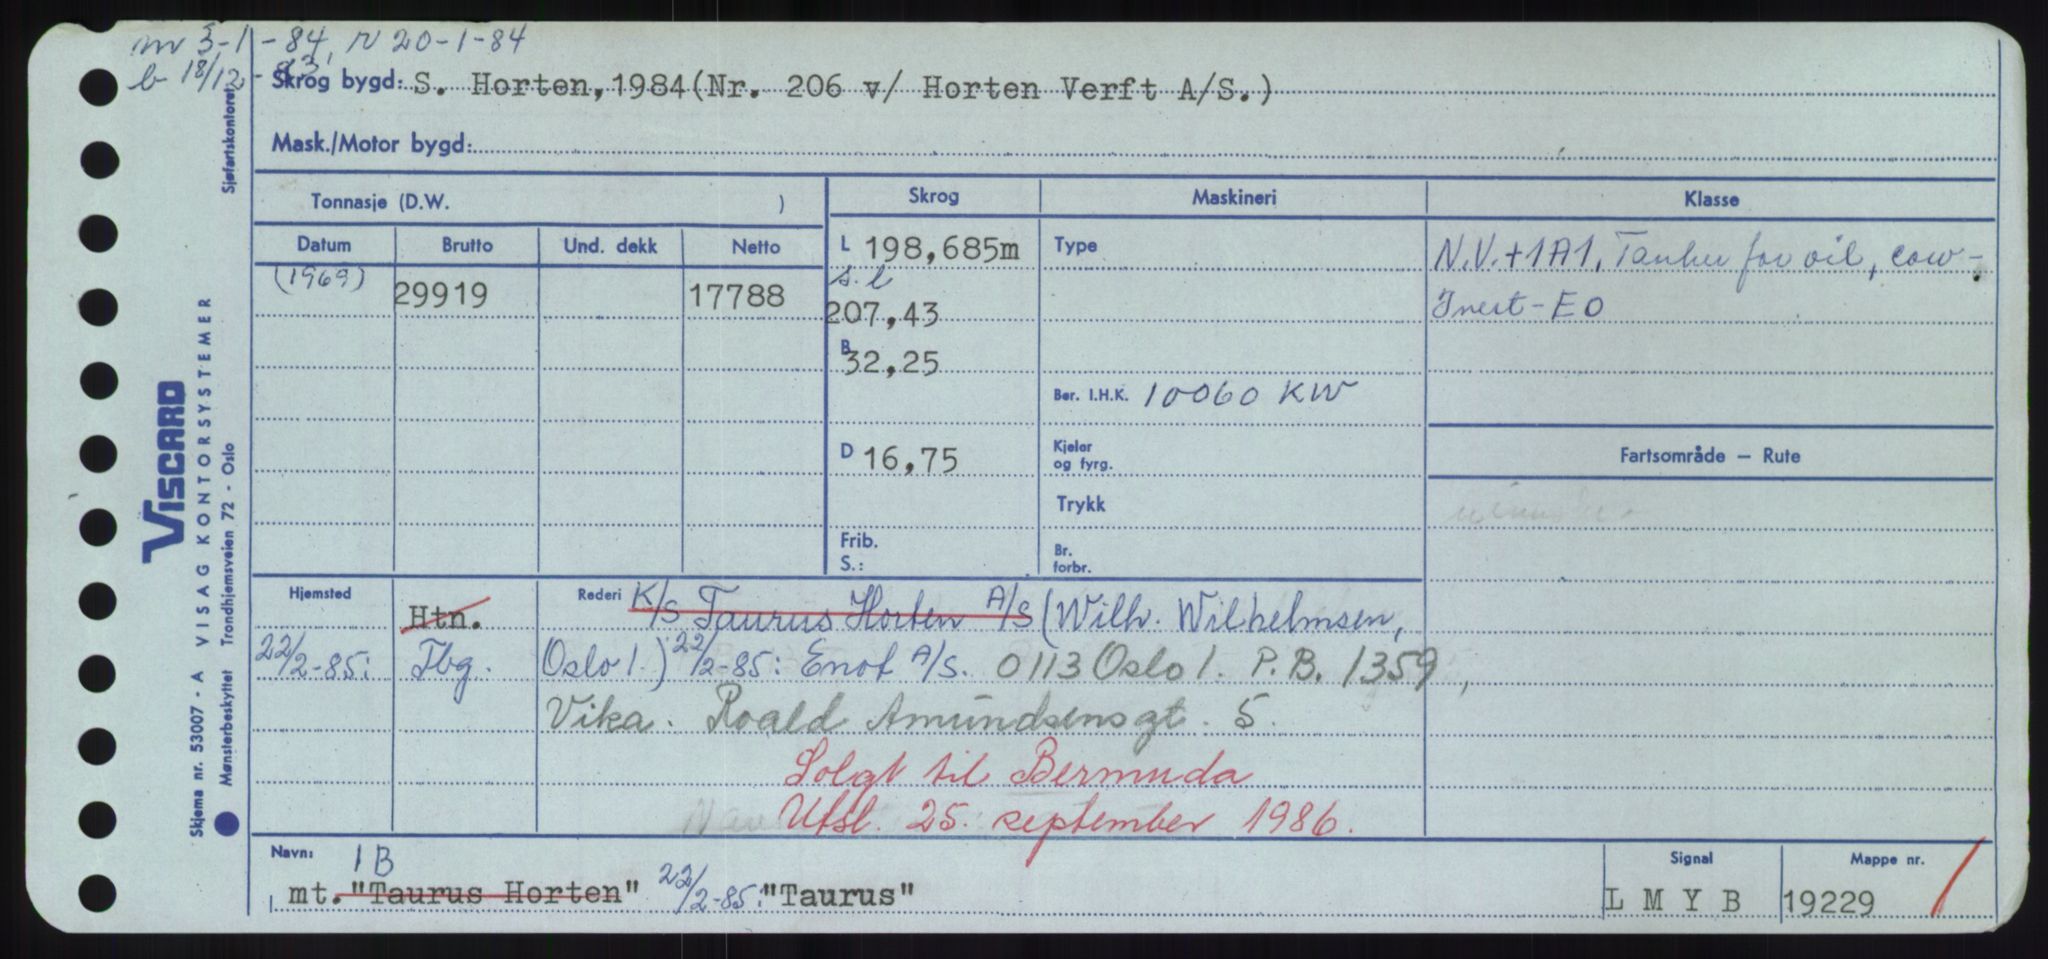 m 3-1-84, r 20-1-84
b 18/12-83,
Skrog bygd: S. Horten, 1984 (Nr. 206 v/ Horten Verft A/S.)
Mask./Motor bygd:
Sjøfartskontoret
Tonnasje (D.W. )
Skrog
Maskineri
Klasse
Datum Brutto Und. dekk Netto
(1969) 29919 17788
L 198,685m
s.l
207,43
B 32,25
D 16,75
Frib.
S.:
Type
Ber. I.H.K. 10060 KW
Kjeler
og fyrg.
Trykk
Br.
forbr.
N.V.+1A1, Tanker for oil, cow-
Inert-EO
Fartsområde — Rute
Hjemsted Htn. Rederi K/S Taurus Horten A/S (Wilh. Wilhelmsen,
22/2-85: Tbg. Oslo 1.) 22/2-85: Enof A/S. 0113 Oslo 1. P.B. 1359,
Vika. Roald Amundsensgt. 5.
Solgt til Bermuda
Utsl. 25. september 1986.
Navn: 1B
mt. "Taurus Horten" 22/2-85: "Taurus"
Signal
L M Y B
Mappe nr.
19229
VISCARD
VISAG KONTORSYSTEMER
Skjema nr. 53007 - A
Mønsterbeskyttet Trondhjemsveien 72 - Oslo